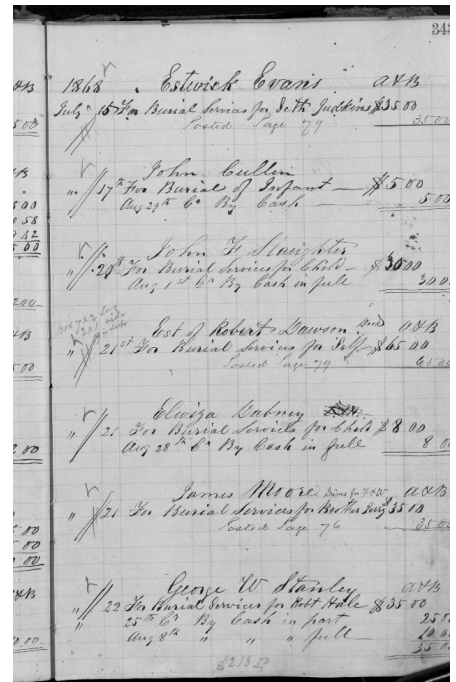 343
1868 Estwick Evans A&B
July 15 For Burial Services for Seth Judkins $35 00
Posted Page 79 35 00
John Cullin
" 17th For Burial of Infant — $5 00
Aug 29th Cr By Cash — 5 00
John F Slaughter
" 20th For Burial Services for Child — $30 00
Aug 1st Cr By Cash in full 30 00
Est of Robert Dawson Decd A&B
" 21st For Burial Services for Self — $65 00
Posted Page 79 65 00
Elwiza Dabney
" 21 For Burial Services for Child $8 00
Aug 28th Cr By Cash in full 8 00
James Moore Drives for A&B
" 21 For Burial Services for Brother $35 00
Posted Page 76 35 00
George W Stanley A&B
" 22 For Burial Services for Robt Hale $35 00
25th Cr By Cash in part 25 00
Aug 8th " " " full — 10 00
35 00
$213